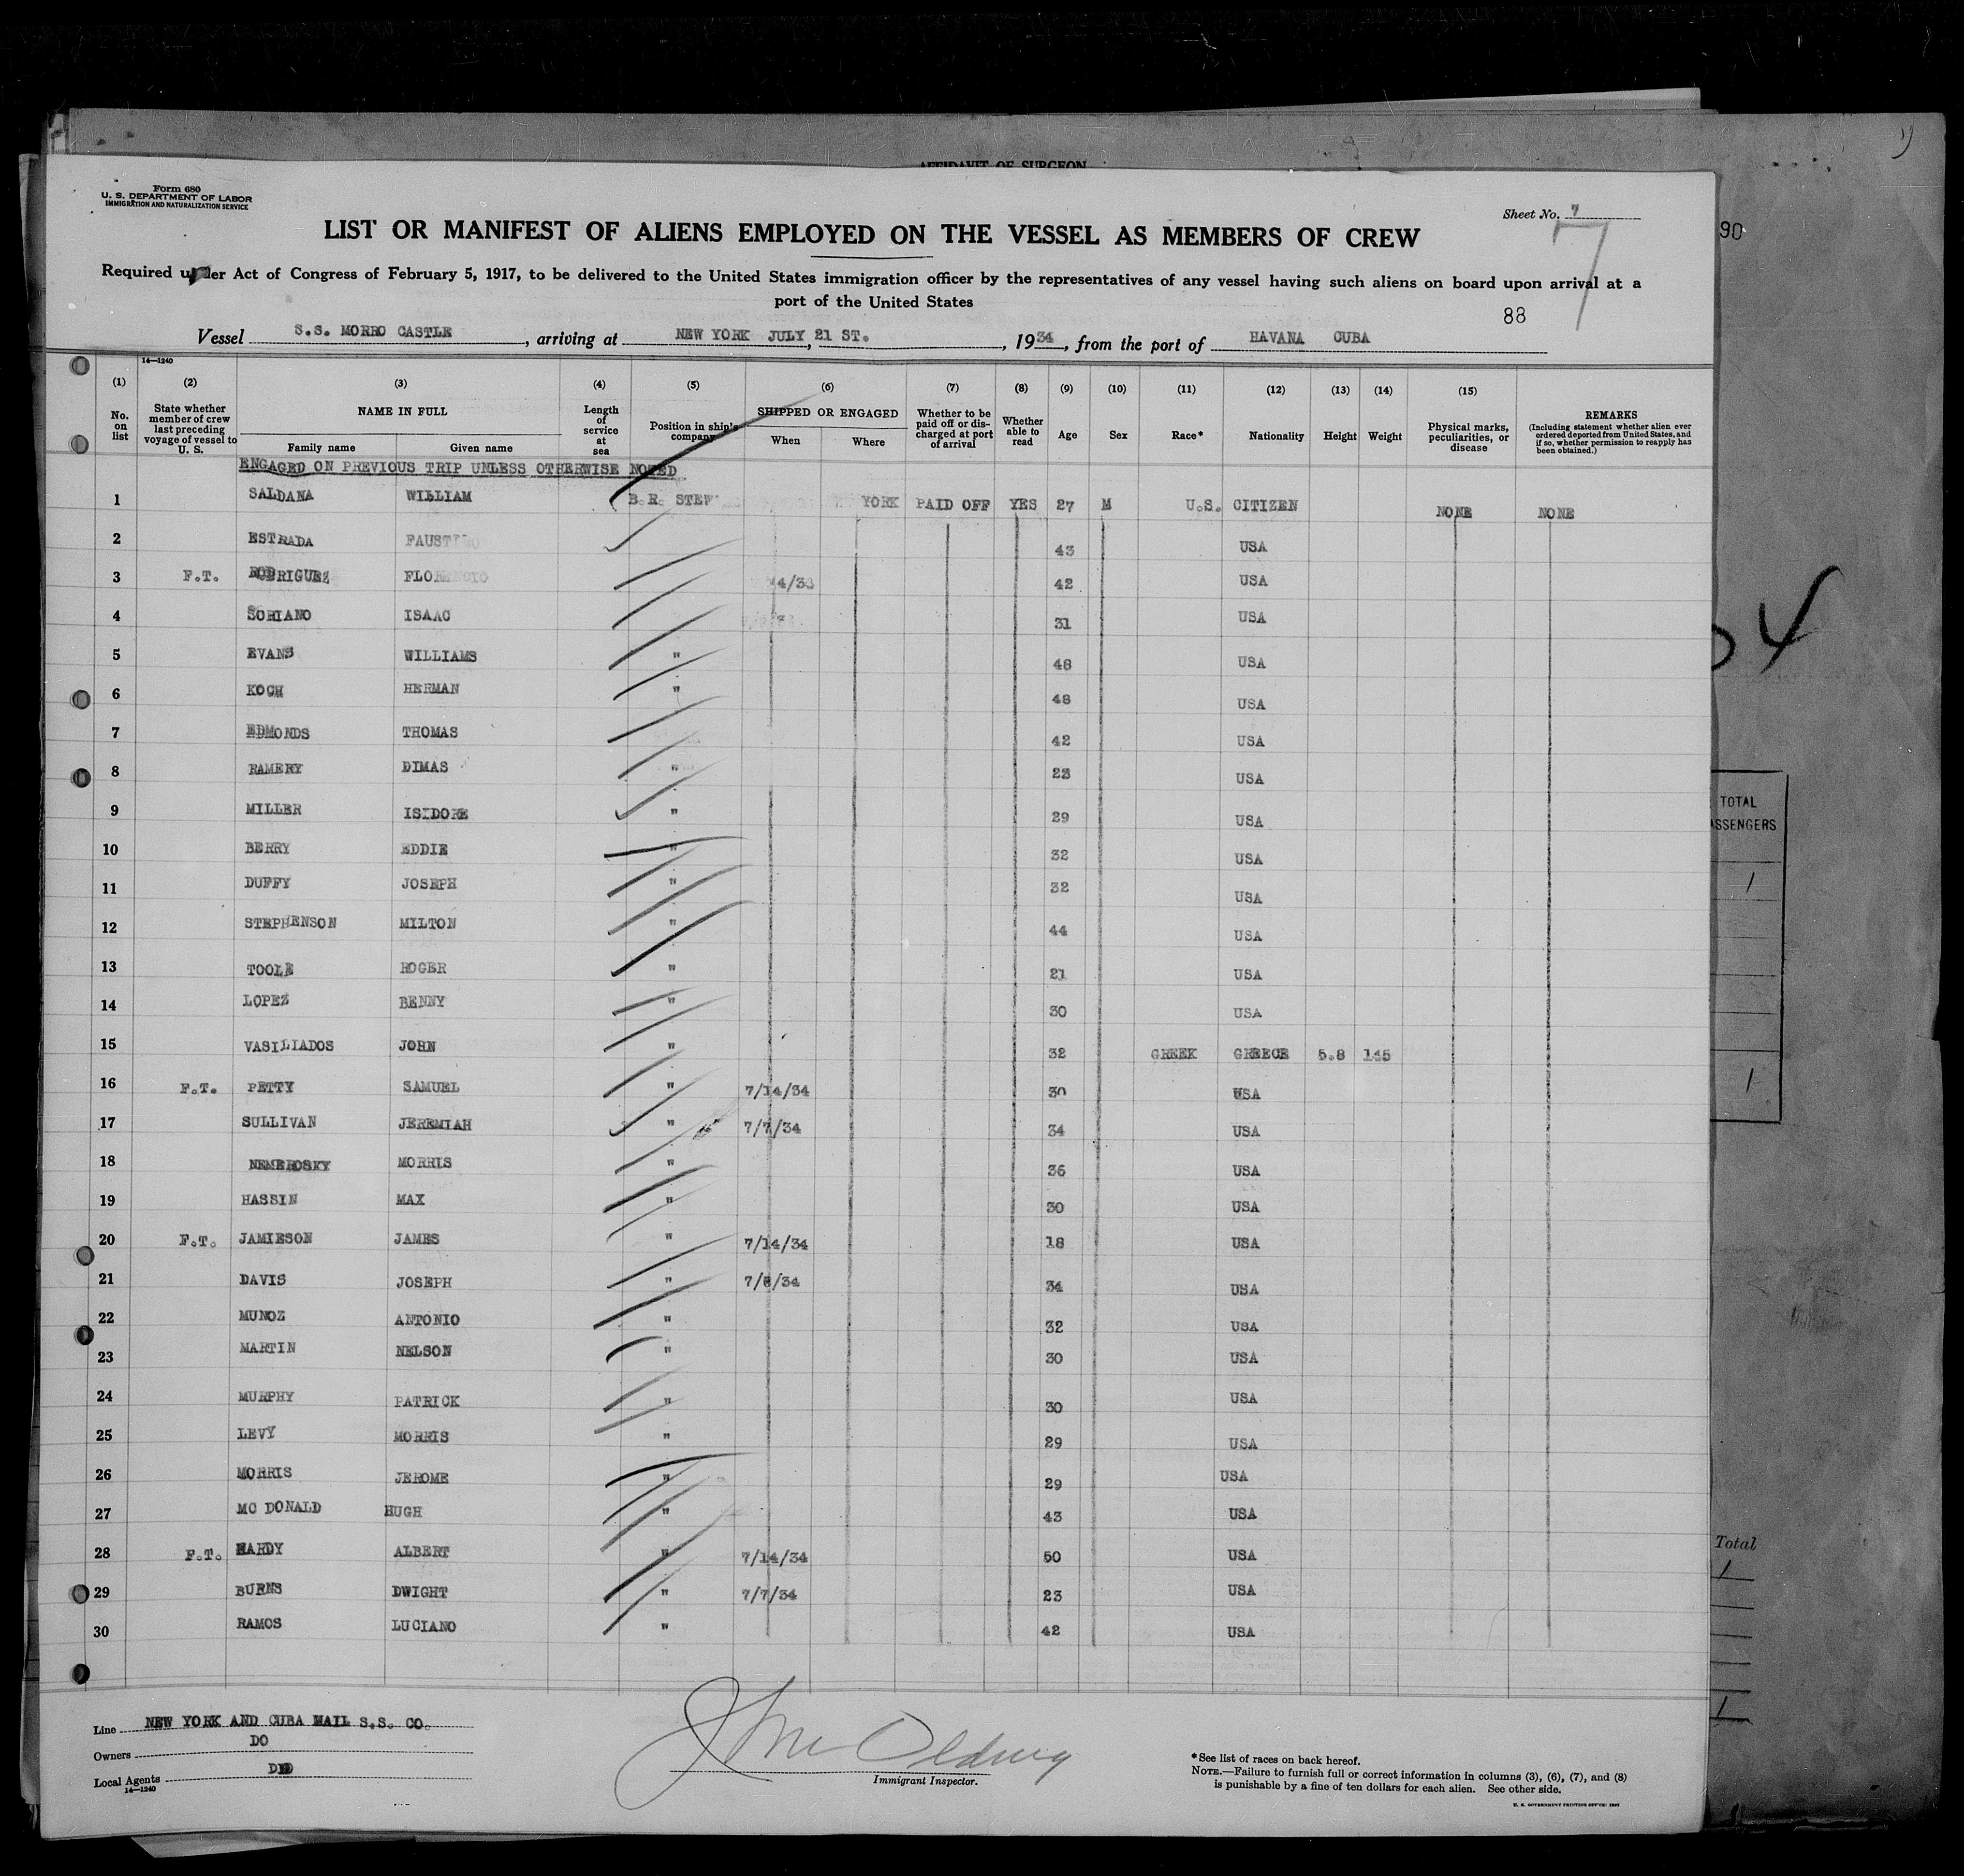 AFFIDAVIT OF SURGEON
Form 680
U. S. DEPARTMENT OF LABOR
IMMIGRATION AND NATURALIZATION SERVICE
Sheet No. 7
7
90
LIST OR MANIFEST OF ALIENS EMPLOYED ON THE VESSEL AS MEMBERS OF CREW
Required under Act of Congress of February 5, 1917, to be delivered to the United States immigration officer by the representatives of any vessel having such aliens on board upon arrival at a
port of the United States
88
Vessel S.S. MORRO CASTLE, arriving at NEW YORK JULY, 21 ST., 1934, from the port of HAVANA CUBA
14—1240
(1) (2) (3) (4) (5) (6) (7) (8) (9) (10) (11) (12) (13) (14) (15)
No. on list
State whether member of crew last preceding voyage of vessel to U. S.
NAME IN FULL
Family name Given name
Length of service at sea
Position in ship's company
SHIPPED OR ENGAGED
When Where
Whether to be paid off or discharged at port of arrival
Whether able to read
Age Sex Race* Nationality Height Weight
Physical marks, peculiarities, or disease
REMARKS
(Including statement whether alien ever ordered deported from United States, and if so, whether permission to reapply has been obtained.)
ENGAGED ON PREVIOUS TRIP UNLESS OTHERWISE NOTED
1 SALDANA WILLIAM B.R. STEW YORK PAID OFF YES 27 M U.S. CITIZEN NONE NONE
2 ESTRADA FAUSTINO 43 USA
3 F.T. RODRIGUEZ FLORENCIO 42 USA
4 SORIANO ISAAC 31 USA
5 EVANS WILLIAMS " 48 USA
6 KOCH HERMAN " 48 USA
7 EDMONDS THOMAS 42 USA
8 RAMERY DIMAS " 23 USA
9 MILLER ISIDORE " 29 USA
10 BERRY EDDIE " 32 USA
11 DUFFY JOSEPH " 32 USA
12 STEPHENSON MILTON " 44 USA
13 TOOLE ROGER " 21 USA
14 LOPEZ BENNY " 30 USA
15 VASILIADOS JOHN " 32 GREEK GREECE 5.8 145
16 F.T. PETTY SAMUEL " 7/14/34 30 USA
17 SULLIVAN JEREMIAH " 7/7/34 34 USA
18 NEMEROSKY MORRIS " 36 USA
19 HASSIN MAX " 30 USA
20 F.T. JAMIESON JAMES " 7/14/34 18 USA
21 DAVIS JOSEPH " 7/8/34 34 USA
22 MUNOZ ANTONIO " 32 USA
23 MARTIN NELSON " 30 USA
24 MURPHY PATRICK " 30 USA
25 LEVY MORRIS " 29 USA
26 MORRIS JEROME " 29 USA
27 MC DONALD HUGH " 43 USA
28 F.T. HARDY ALBERT " 7/14/34 50 USA
29 BURNS DWIGHT " 7/7/34 23 USA
30 RAMOS LUCIANO " 42 USA
TOTAL
Total
Line NEW YORK AND CUBA MAIL S.S. CO.
Owners DO
Local Agents DO
14—1240
Immigrant Inspector.
*See list of races on back hereof.
NOTE.—Failure to furnish full or correct information in columns (3), (6), (7), and (8)
is punishable by a fine of ten dollars for each alien. See other side.